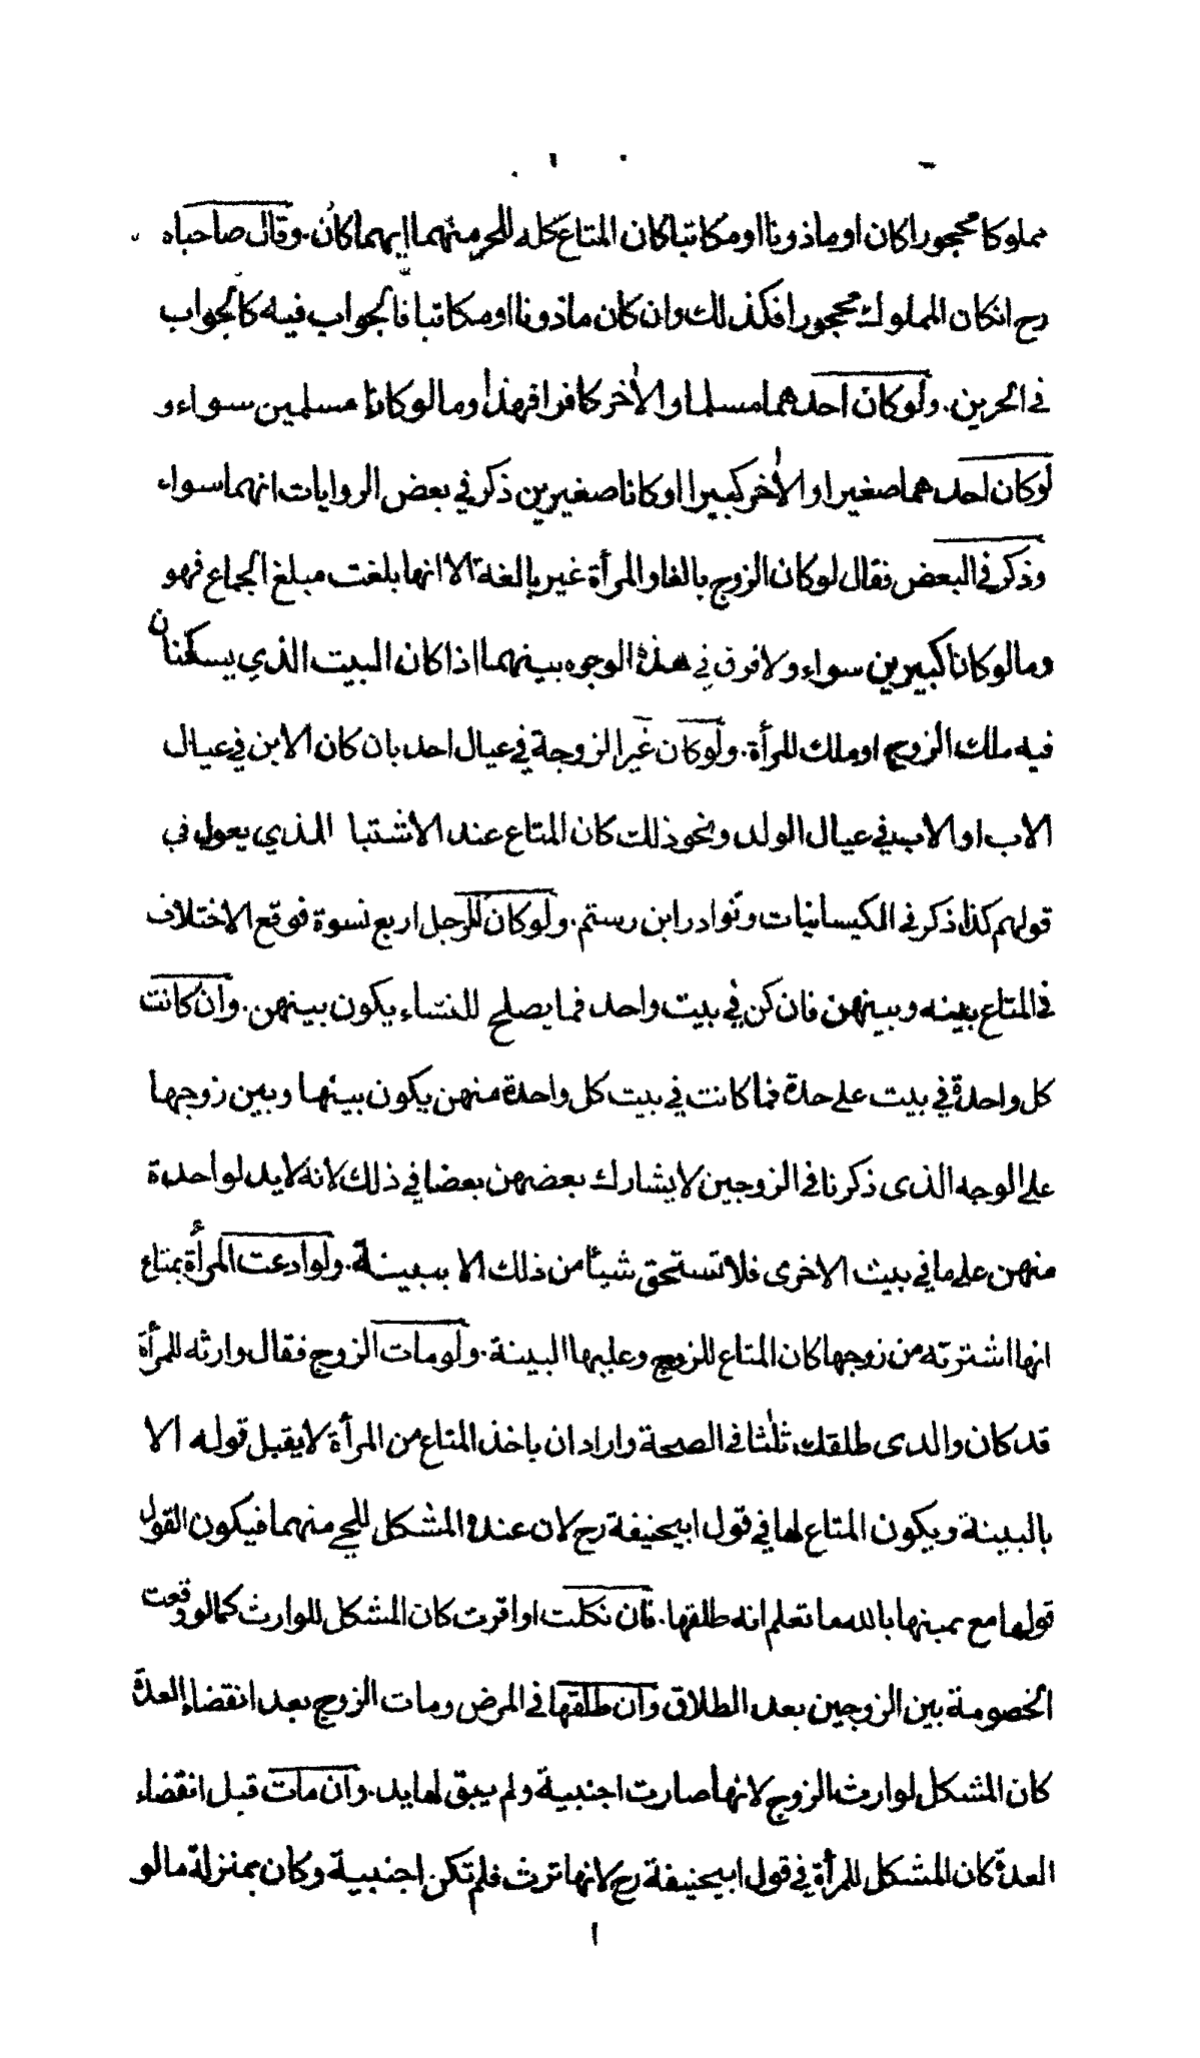 مملوكا محجورا كان او ماذونا او مكاتبا كان المتاع كله للحر منهما ايهما كان. وقال صاحباه
رح انكان المملوك محجورا فكذلك وان كان ماذونا او مكاتبا فالجواب فيه كالجواب
في الحرين. ولو كان احدهما مسلما والاٰخر كافرا فهذا وما لو كانا مسلمين سواء و
لو كان احدهما صغيرا والاٰخر كبيرا او كانا صغيرين ذكر في بعض الروايات انهما سواء
وذكر في البعض فقال لو كان الزوج بالغا والمرأة غير بالغة الا انها بلغت مبلغ الجماع فهو
وما لو كانا كبيرين سواء ولا فرق في هذه الوجوه بينهما اذا كان البيت الذي يسكنان
فيه ملك الزوج او ملك المرأة. ولو كان غير الزوجة في عيال احد بان كان الابن في عيال
الاب او الاب في عيال الولد ونحو ذلك كان المتاع عند الاشتبا للذي يعول في
قولهم كذا ذكر في الكيسانيات ونوادر ابن رستم. ولو كان للرجل اربع نسوة فوقع الاختلاف
في المتاع بينه وبينهن فان كن في بيت واحد فما يصلح للنساء يكون بينهن. وان كانت
كل واحدة في بيت على حدة فما كانت في بيت كل واحدة منهن يكون بينها وبين زوجها
على الوجه الذى ذكرنا في الزوجين لا يشارك بعضهن بعضا في ذلك لانه لا يد لواحدة
منهن على ما في بيت الاخرى فلا تستحق شيئا من ذلك الا ببينة. ولو ادعت المرأة بمتاع
انها اشترته من زوجها كان المتاع للزوج وعليها البينة. ولو مات الزوج فقال وارثه للمرأة
قد كان والدى طلقك ثلٰثا في الصحة واراد ان ياخذ المتاع من المرأة لا يقبل قوله الا
بالبينة ويكون المتاع لها في قول ابيحنيفة رح لان عنده المشكل للحي منهما فيكون القول
قولها مع يمينها بالله ما تعلم انه طلقها. فان نكلت او اقرت كان المشكل للوارث كما لو وقعت
الخصومة بين الزوجين بعد الطلاق وان طلقها في المرض ومات الزوج بعد انقضاء العدة
كان المشكل لوارث الزوج لانها صارت اجنبية ولم يبق لها يد. وان مات قبل انقضاء
العدة كان المشكل للمرأة في قول ابيحنيفة رح لانها ترث فلم تكن اجنبية وكان بمنزلة ما لو